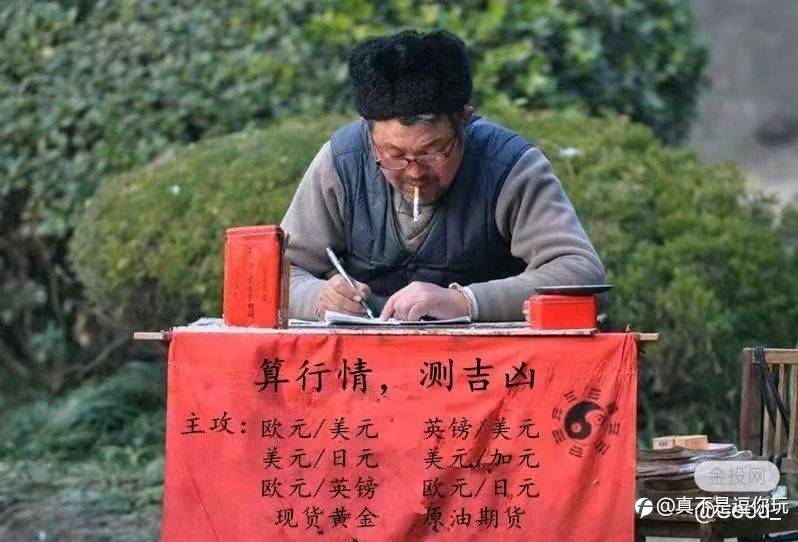 算行情，测吉凶
主攻：欧元/美元 英镑/美元
美元/日元 美元/加元
欧元/英镑 欧元/日元
现货黄金 原油期货
金投网
@真不是逗你玩